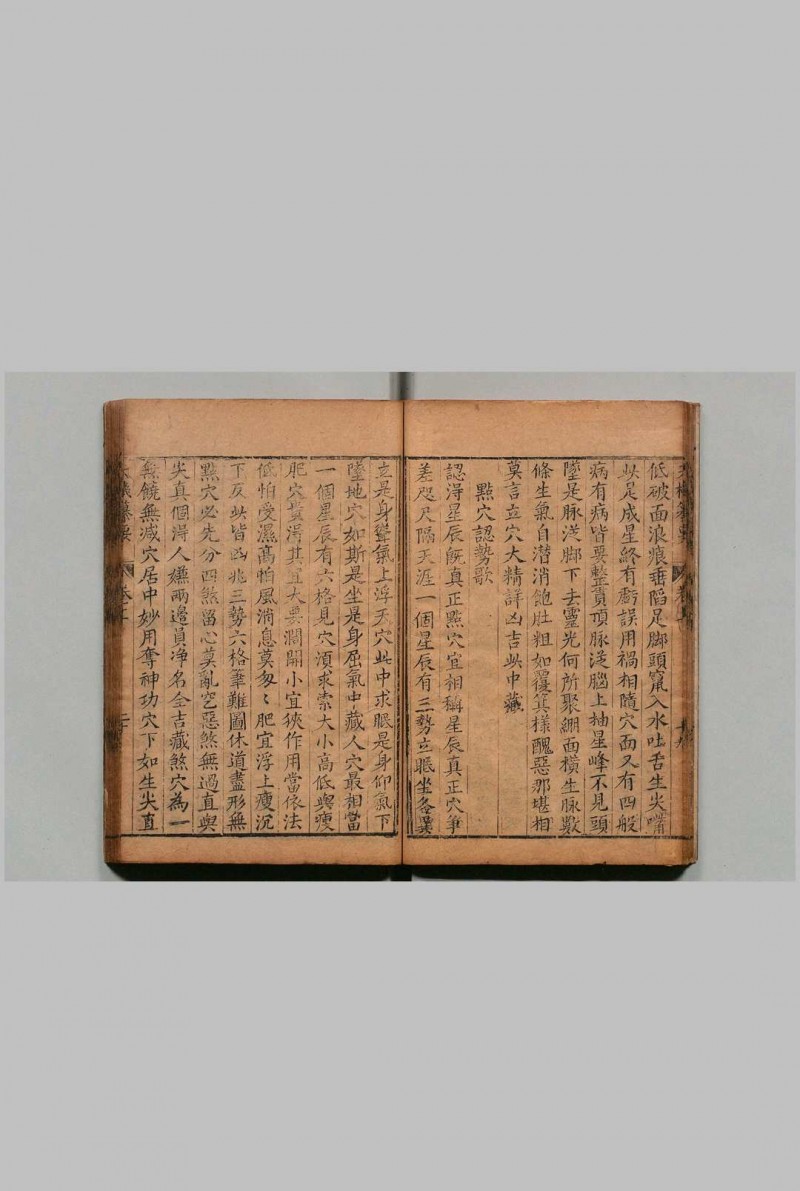 低破面浪痕垂陷足脚頭竄入水吐舌生尖嘴
此足成星終有虧誤用禍相隨穴面又有四般
病有病皆要整責頂脉送腦上抽星峰不見頭
墜是脉送脚下去靈光何所聚綳面橫生脉數
條生氣自潛消飽肚粗如覆箕樣醜惡那堪相
莫言立穴大精詳凶吉此中藏
點穴認勢歌
認得星辰旣真正點穴宜相稱星辰真正穴争
差咫尺隔天涯一個星辰有三勢立眠坐各異
立是身聳氣上浮天穴此中求眠是身仰氣下
墜地穴如斯是坐是身屈氣中藏人穴最相當
一個星辰有六格見穴須求索大小高低與瘦
肥穴貴得其宜大要濶開小宜狹作用當依法
低怕受濕高怕風消息莫匆〻肥宜浮上瘦沉
下反此皆凶兆三勢六格筆難圖休道盡形無
點穴必先分四煞留心莫亂空惡煞無過直與
尖真個得人嫌兩邉員净名全吉藏煞穴為一
無饒無减穴居中妙用奪神功穴下如生尖直